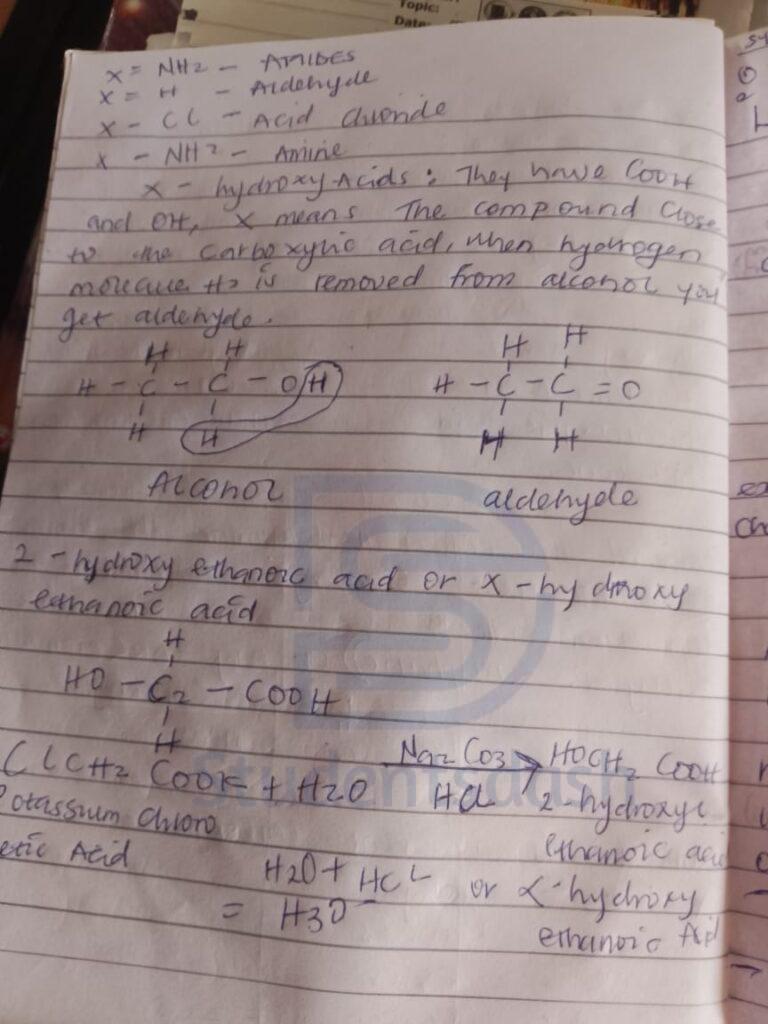 Topic:
Date:
x = NH2 - AMIDES
x = H - Aldehyde
x - Cl - Acid Chloride
x - NH2 - Amine
x - hydroxy Acids: They have COOH
and OH, x means The compound Close
to the carboxylic acid, when hydrogen
molecule H2 is removed from alcohol you
get aldehyde.
H H
H - C - C - O H
H H
H H
H - C - C = O
H H
Alcohol aldehyde
2 - hydroxy ethanoic acid or x - hydroxy
ethanoic acid
H
HO - C2 - COOH
H
ClCH2 COOK + H2O Na2 CO3 HCl HOCH2 COOH
Potassium Chloro 2-hydroxyl
etic Acid ethanoic acid
H2O + HCL or α-hydroxy
= H3O ethanoic Acid
Studentsdash